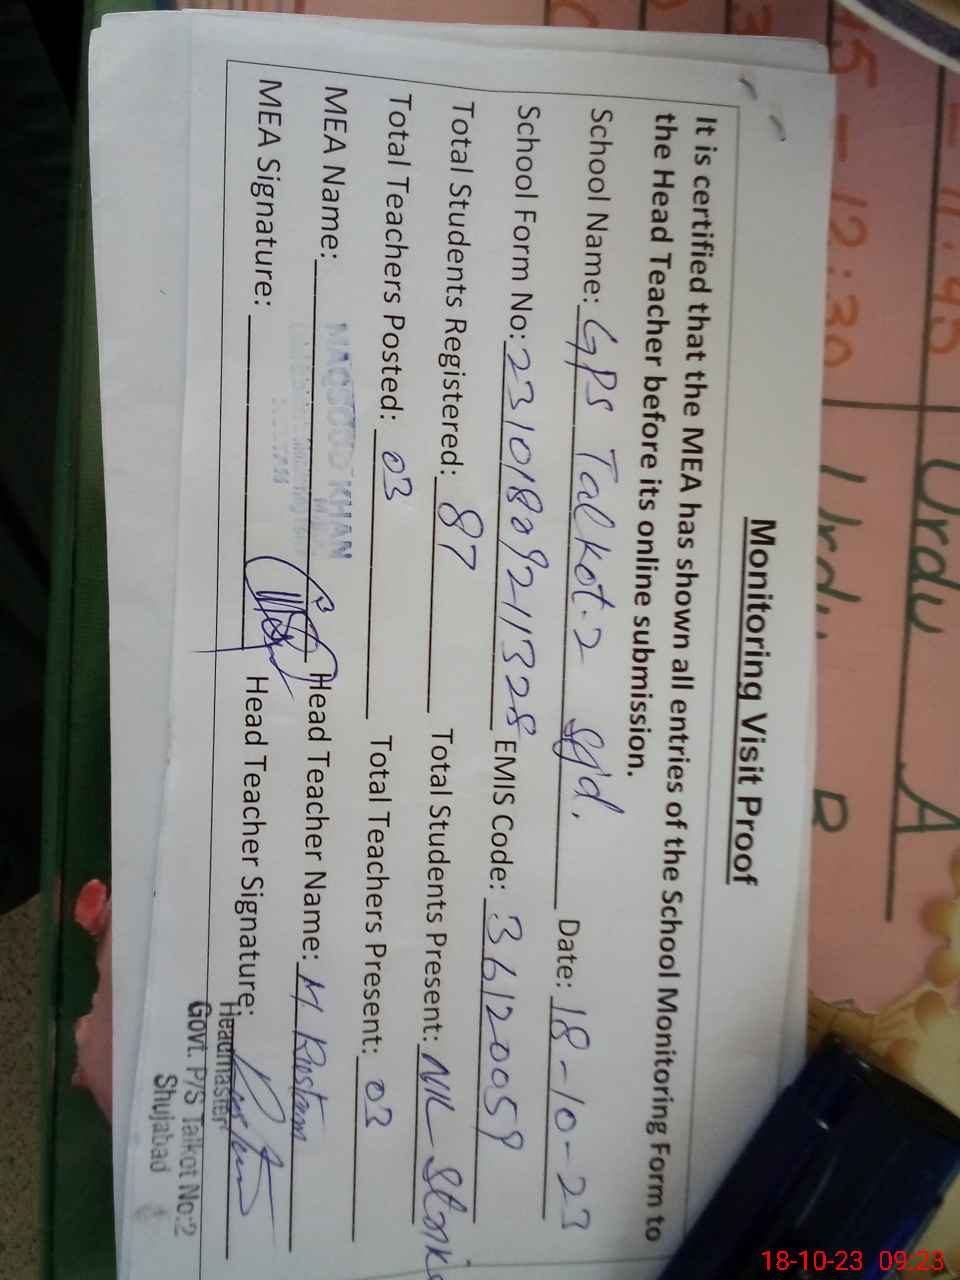 Monitoring Visit Proof
It is certified that the MEA has shown all entries of the School Monitoring Form to
the Head Teacher before its online submission.
School Name: GPS Talkot.2 SJd. Date: 18-10-23
School Form No: 23101809211328 EMIS Code: 36120059
Total Students Registered: 87 Total Students Present: NIL
Total Teachers Posted: 03 Total Teachers Present: 03
MEA Name: MAQSOOD KHAN Head Teacher Name: M Rustam
MEA Signature: Head Teacher Signature:
Headmaster
Govt. P/S Talkot No:2
Shujabad
- 11:45 Urdu A
45 - 12:30 Urdu B
18-10-23 09:23